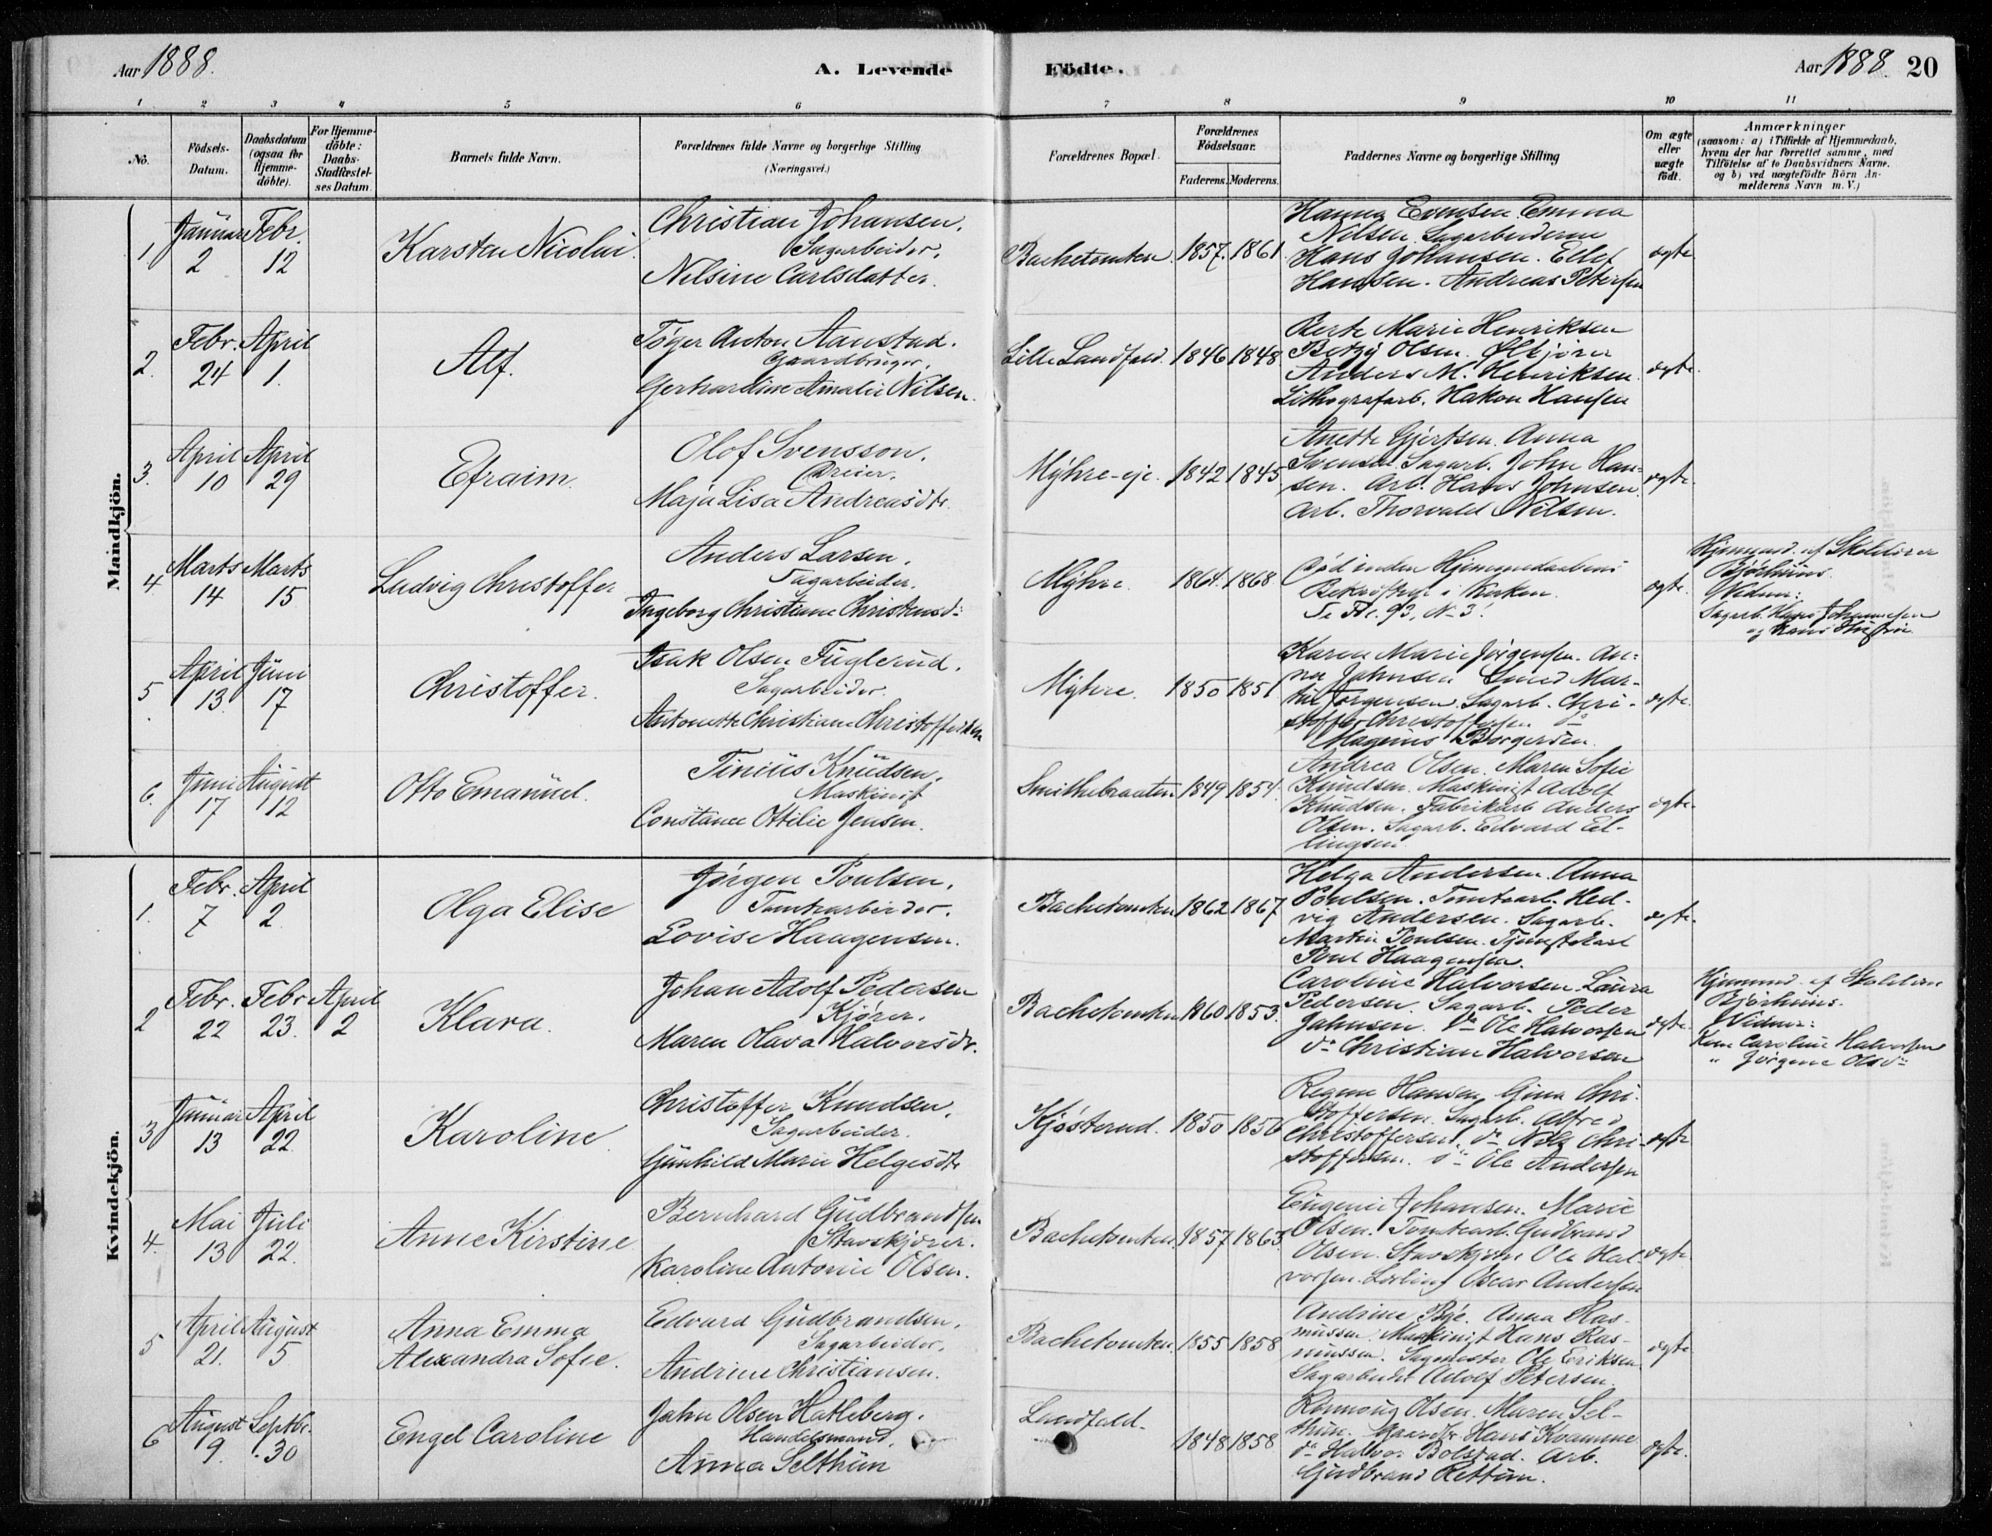 Aar 1888.
A. Levende
Födte.
Aar 1888. 20
1 2 3 4 5 6 7 8 9 10 11
No.
Födsels-
Datum.
Daabsdatum
(ogsaa for
Hjemme-
döbte).
For Hjemme-
döbte:
Daabs-
Stadfæstel-
ses Datum.
Barnets fulde Navn.
Forældrenes fulde Navne og borgerlige Stilling
(Næringsvei.)
Forældrenes Bopæl.
Forældrenes
Födselsaar.
Faderens. Moderens.
Faddernes Navne og borgerlige Stilling
Om ægte
eller
uægte
födt.
Anmærkninger
(saasom: a) i Tilfælde af Hjemmedaab,
hvem der har forrettet samme, med
Tilföielse af to Daabsvidners Navne.
og b) ved uægtefödte Börn An-
melderens Navn m. V.)
Mandkjön.
1 Januar 2 Febr. 12
Karsten Nicolai.
Christian Johansen.
Sagarbeider.
Nilsine Carlsdatter.
Bachetomten. 1857. 1861.
Hanna Evensen. Emma
Nilsen. Sagarbeiderne
Hans Johansen. Ellef
Hansen. Andreas Petersen
ægte
2. Febr. 24 April 1.
Alf.
Tøger Anton Aamstad.
Gaardbruger.
Gerhardine Amalie Nilsen.
Lille Landfald. 1846 1848
Berte Marie Henriksen
Betzy Olsen. Ølkjører
Anders M. Henriksen.
Lithografarb. Hakon Hansen
ægte.
3. April 10 April 29
Efraim.
Olof Svensson.
Dreier.
Maja Lisa Andreasdtr.
Myhre-eje. 1842 1845
Anette Gjertsen. Anna
Svensen. Sagarb. John Han-
sen. Arb. Hans Johnsen.
Arb. Thorvald Nilsen.
ægte.
4 Marts 14 Marts 15
Ludvig Christoffer
Anders Larsen.
Sagarbeider.
Ingeborg Christiane Christensd:
Myhre. 1864. 1868
Død inden Hjemmedaabens
Bekræftelse i Kirken.
N. 3.
ægte.
Hjemmed. af Skolelærer
Bjørhuus.
Vidner:
Sagarb. Hans Johannesen
og Hans Hustru
5. April 13. Juni 17
Christoffer.
Isak Olsen Fuglerud.
Sagarbeider.
Antonette Christiane Christoffersen
Myhre. 1850 1851
Karen Marie Jørgensen. An-
na Jahnsen. Smed Mar-
tin Jørgensen. Sagarb. Chri-
stoffer Christoffersen do
Magnus Borgersen.
ægte.
6. Juni 17 August 12
Otto Emanuel.
Tinius Knudsen.
Maskinist
Constance Ottilie Jensen.
Smithebraaten 1849 1854.
Andrea Olsen. Maren Sofie
Knudsen. Maskinist Adolf
Knudsen. Fabrikarb Anders
Olsen. Sagarb. Edvard El-
lingsen
ægte.
Kvindekjön.
1. Febr. 7 April 2.
Olga Elise
Jørgen Poulsen.
Tomtearbeider.
Lovise Haagensen.
Bachetomten 1862 1867
Helga Andersen. Anna
Poulsen. Tomtearb. Hed-
vig Andersen. Sagarb.
Martin Poulsen. Tjenestekarl
Poul Haagensen.
ægte.
2 Febr. 22 Febr 23. April 2
Klara.
Johan Adolf Pedersen
Kjører.
Maren Olava Halvorsdr.
Bachetomten 1860 1853.
Caroline Halvorsen. Laura
Pedersen. Sagarb. Peder
Jahnsen. do Ole Halvorsen
do Christian Halvorsen
ægte.
Hjemmed. af Skolelærer
Bjørhuus.
Vidner:
Kone Caroline Halvorsen
" Jørgine Olsdr
3 Januar 13 April 22.
Karoline
Christoffer Knudsen.
Sagarbeider.
Gunhild Marie Helgesdtr
Kjøsterud. 1850 1850
Regine Hansen. Gina Chri-
stoffersen. Sagarb. Alfred
Christoffersen. do Nils Chri-
stoffersen. do Ole Andersen
ægte
4. Mai 13 Juli 22.
Anne Kirstine
Bernhard Gudbrandsen
Stavskjører.
Karoline Antonie Olsen.
Bachetomten. 1857 1863
Eugenie Johansen. Marie
Olsen. Tomtearb. Gudbrand
Olsen. Stavskjører Ole Hal-
vorsen. Oscar Andersen
ægte
5 April 21. August 5
Anna Emma
Alexandra Sofie.
Edvard Gudbrandsen.
Sagarbeider.
Andrine Christiansen.
Bachetomten. 1855 1858
Andrine Bye. Anna Ras-
mussen. Maskinist Hans Ras-
mussen. Sagmester Ole Eriksen
Sagarbeider Adolf Petersen.
ægte
6 August 9. Septbr. 30
Engel Caroline
Jahn Olsen Hatleberg.
Handelsmand.
Anna Selthun
Landfald. 1848 1858
Rannoug Olsen. Maren Sel-
thun. Gaardbr Hans Kvamme
do Halvor Bolstad. Arb.
Gudbrand Rettum.
ægte.